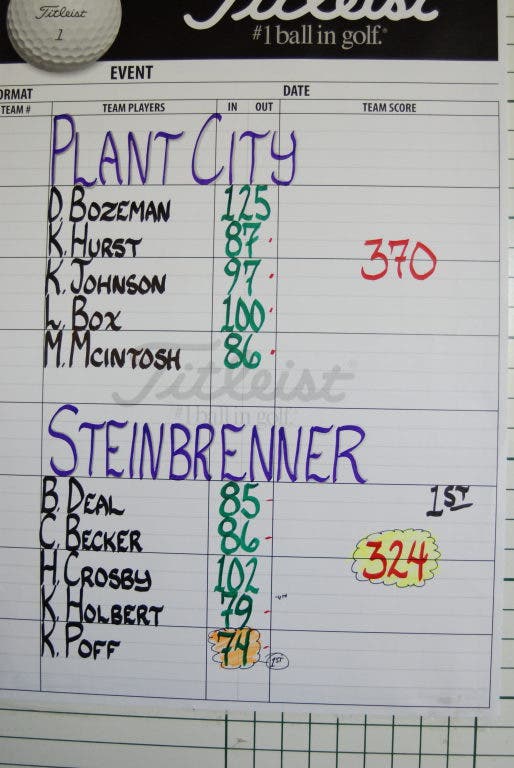 Titleist
1
Titleist
#1 ball in golf.®
EVENT
ORMAT DATE
TEAM # TEAM PLAYERS IN OUT TEAM SCORE
PLANT CITY
D. BOZEMAN 125
K. HURST 87
K. JOHNSON 97
370
L. BOX 100
M. MCINTOSH 86
Titleist®
#1 ball in golf.
STEINBRENNER
B. DEAL 85
1ST
C. BECKER 86
324
H. CROSBY 102
K. HOLBERT 79
K. POFF 74
1ST